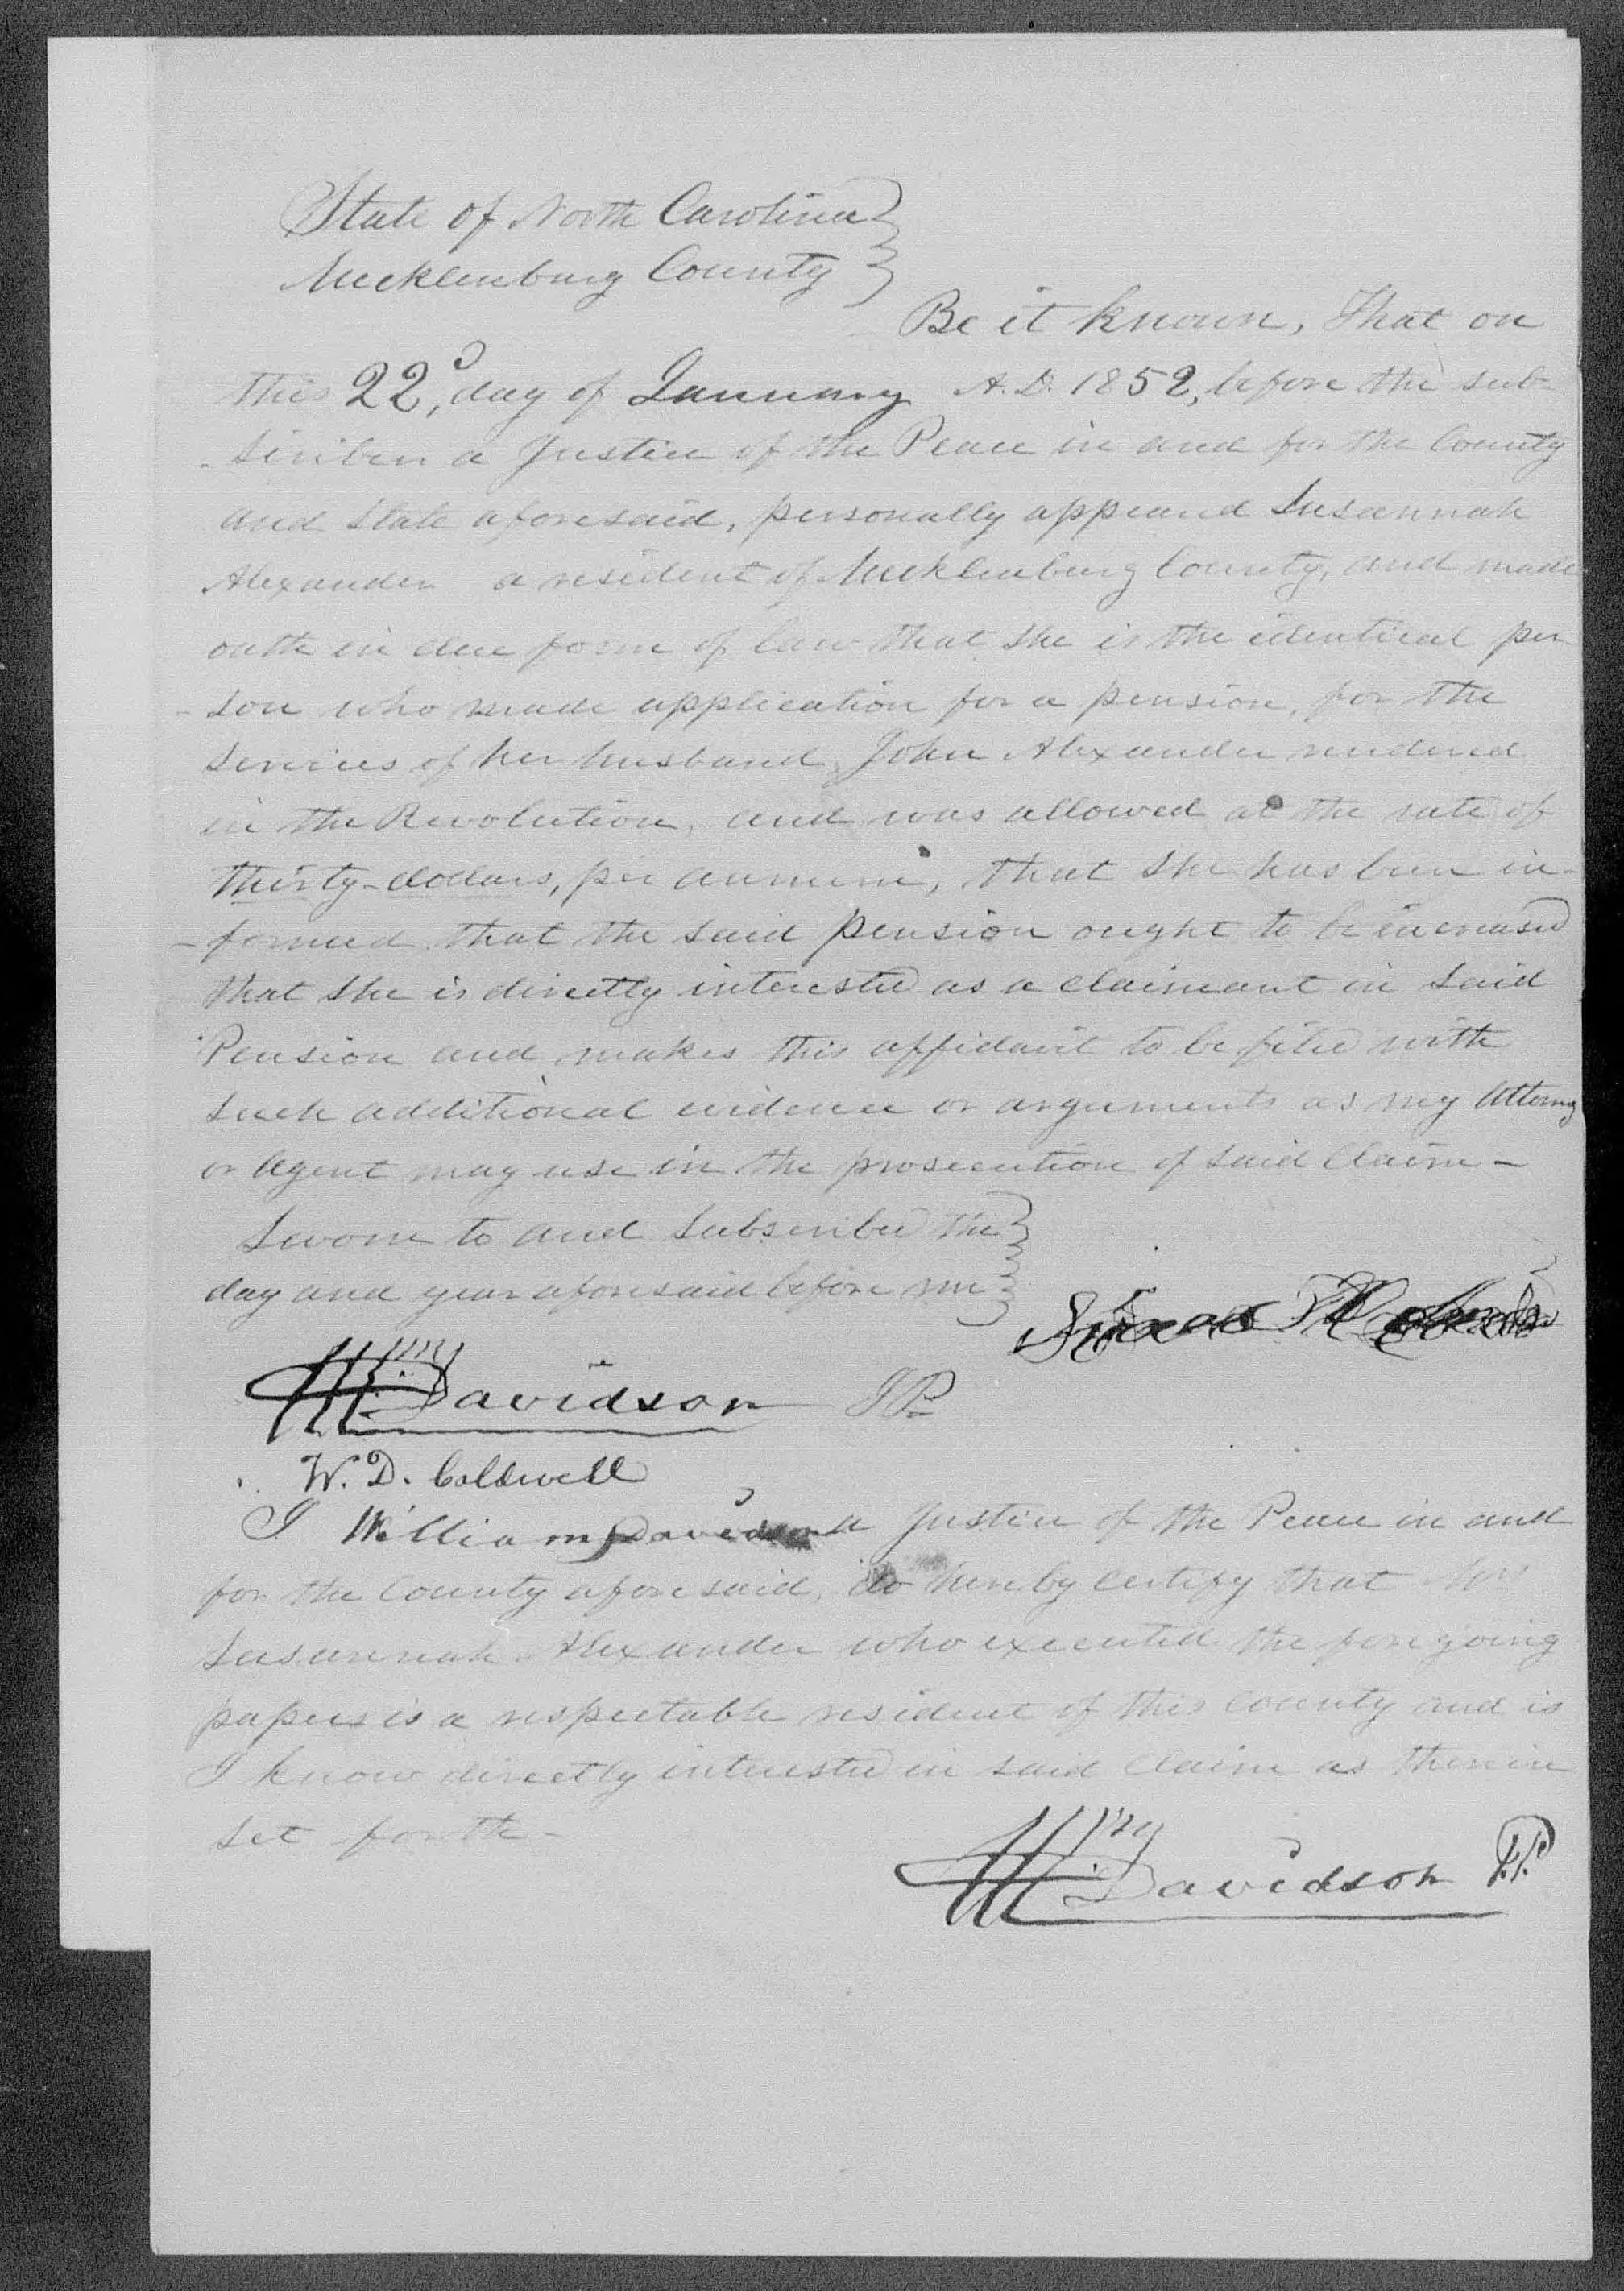 State of North Carolina
Mecklenburg County
Be it known, That on
this 22d, day of January A.D. 1852, before the sub-
-scriber a Justice of the Peace in and for the County
and State aforesaid, personally appeared Susannah
Alexander a resident of Mecklenburg County, and made
oath in due form of law that she is the identical per
-son who made application for a pension, for the
services of her husband John Alexander rendered
in the Revolution, and was allowed at the rate of
thirty-dollars, per annum, that she has been in-
-formed that the said pension ought to be increased
that she is directly interested as a claimant in said
Pension and makes this affidavit to be filed with
such additional evidence or arguments as my Attorney
or Agent may use in the prosecution of said Claim -
Sworn to and subscribed the
day and year aforesaid before me
Wm Davidson JP
W. D. Caldwell
I William Davidson a Justice of the Peace in and
for the County aforesaid, do hereby certify that Mrs
Susannah Alexander who executed the foregoing
papers is a respectable resident of this County and is
I know directly interested in said Claim as therein
set forth -
Wm Davidson J.P.